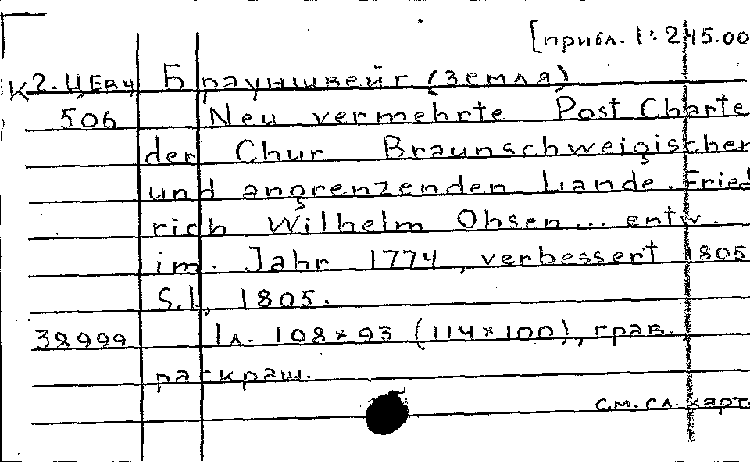 [прибл. 1:245.00
К2.ЦЕвч Брауншвейг (земля)
506 Neu vermehrte Post Charte
der Chur Braunschweigischer
und angrenzenden Lande. Fried
rich Wilhelm Ohsen... entw.
im. Jahr 1774, verbessert 1805
S.l., 1805.
38999 1л. 108×93 (114×100), грав.
раскраш.
см. сл. карт.